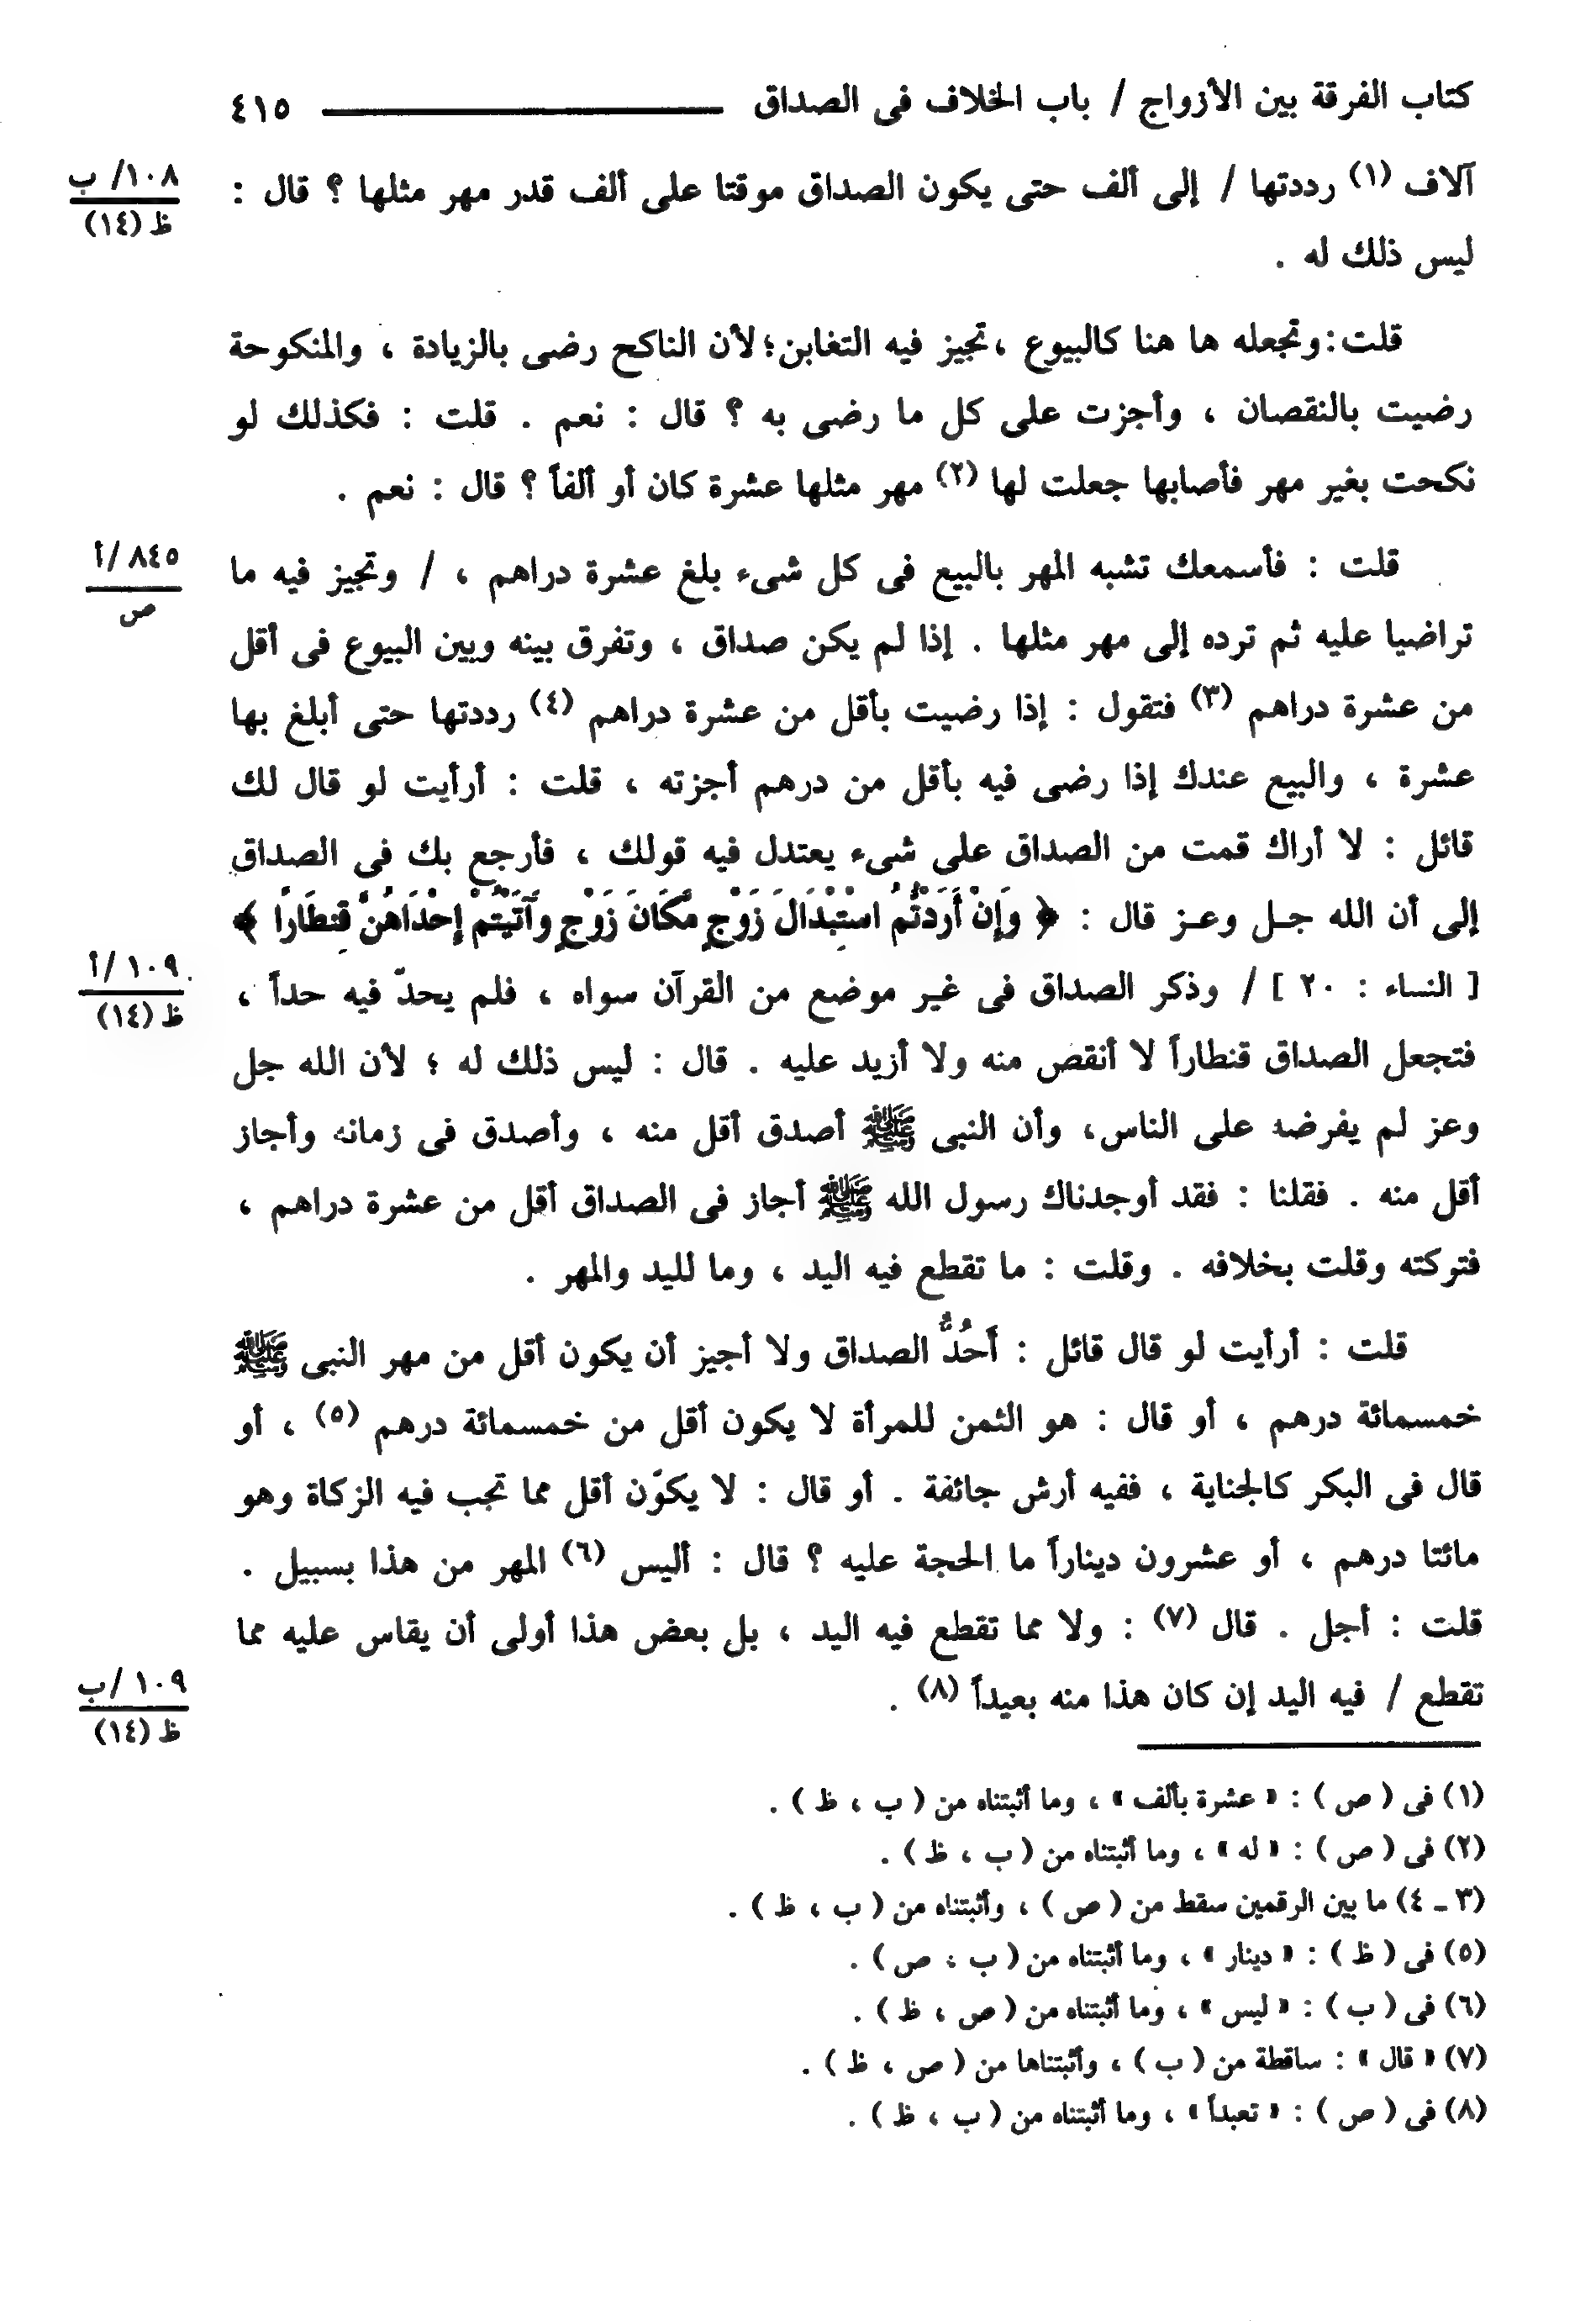 كتاب الفرقة بين الأزواج / باب الخلاف فى الصداق ــــــــــــــ ٤١٥
آلاف (١) رددتها / إلى ألف حتى يكون الصداق موقتا على ألف قدر مهر مثلها ؟ قال :
١٠٨/ ب
ظ (١٤)
ليس ذلك له .
قلت : وتجعله ها هنا كالبيوع ، تجيز فيه التغابن ؛ لأن الناكح رضى بالزيادة ، والمنكوحة
رضيت بالنقصان ، وأجزت على كل ما رضى به ؟ قال : نعم . قلت : فكذلك لو
نكحت بغير مهر فأصابها جعلت لها (٢) مهر مثلها عشرة كان أو ألفاً ؟ قال : نعم .
قلت : فأسمعك تشبه المهر بالبيع فى كل شىء بلغ عشرة دراهم ، / وتجيز فيه ما
٨٤٥ /أ
ص
تراضيا عليه ثم ترده إلى مهر مثلها . إذا لم يكن صداق ، وتفرق بينه وبين البيوع فى أقل
من عشرة دراهم (٣) فتقول : إذا رضيت بأقل من عشرة دراهم (٤) رددتها حتى أبلغ بها
عشرة ، والبيع عندك إذا رضى فيه بأقل من درهم أجزته ، قلت : أرأيت لو قال لك
قائل : لا أراك قمت من الصداق على شىء يعتدل فيه قولك ، فأرجع بك فى الصداق
إلى أن الله جل وعز قال : ﴿ وَإِنْ أَرَدتُّمُ اسْتِبْدَالَ زَوْجٍ مَّكَانَ زَوْجٍ وَآتَيْتُمْ إِحْدَاهُنَّ قِنطَارًا ﴾
[ النساء : ٢٠ ] / وذكر الصداق فى غير موضع من القرآن سواه ، فلم يحدّ فيه حداً ،
١٠٩ /أ
ظ (١٤)
فتجعل الصداق قنطاراً لا أنقص منه ولا أزيد عليه . قال : ليس ذلك له ؛ لأن الله جل
وعز لم يفرضه على الناس، وأن النبى ﷺ أصدق أقل منه ، وأصدق فى زمانه وأجاز
أقل منه . فقلنا : فقد أوجدناك رسول الله ﷺ أجاز فى الصداق أقل من عشرة دراهم ،
فتركته وقلت بخلافه . وقلت : ما تقطع فيه اليد ، وما لليد والمهر .
قلت : أرأيت لو قال قائل : أَحُدُّ الصداق ولا أجيز أن يكون أقل من مهر النبى ﷺ
خمسمائة درهم ، أو قال : هو الثمن للمرأة لا يكون أقل من خمسمائة درهم (٥) ، أو
قال فى البكر كالجناية ، ففيه أرش جائفة . أو قال : لا يكوّن أقل مما تجب فيه الزكاة وهو
مائتا درهم ، أو عشرون ديناراً ما الحجة عليه ؟ قال : أليس (٦) المهر من هذا بسبيل .
قلت : أجل . قال (٧) : ولا مما تقطع فيه اليد ، بل بعض هذا أولى أن يقاس عليه مما
تقطع / فيه اليد إن كان هذا منه بعيداً (٨) .
١٠٩ /ب
ظ (١٤)
(١) فى ( ص ) : « عشرة بألف » ، وما أثبتناه من ( ب ، ظ ) .
(٢) فى ( ص ) : « له » ، وما أثبتناه من ( ب ، ظ ) .
(٣ ـ ٤) ما بين الرقمين سقط من ( ص ) ، وأثبتناه من ( ب ، ظ ) .
(٥) فى ( ظ ) : « دينار » ، وما أثبتناه من ( ب ، ص ) .
(٦) فى ( ب ) : « ليس » ، وما أثبتناه من ( ص ، ظ ) .
(٧) « قال » : ساقطة من ( ب ) ، وأثبتناها من ( ص ، ظ ) .
(٨) فى ( ص ) : « تعبداً » ، وما أثبتناه من ( ب ، ظ ) .